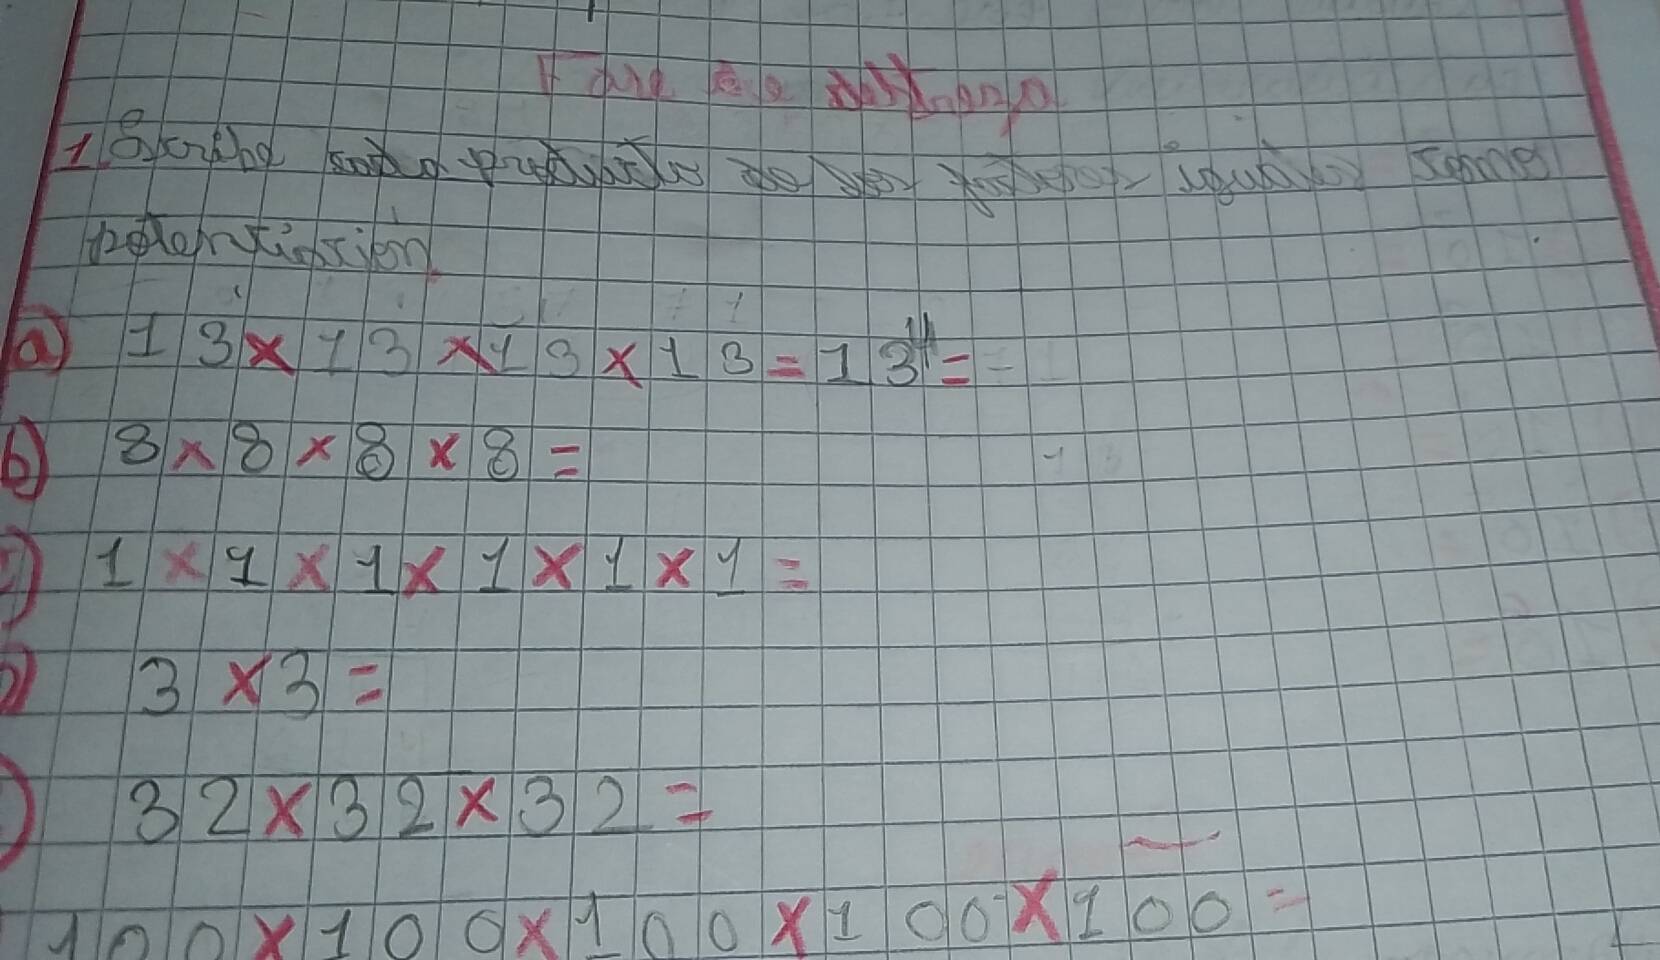 1 Escribe cada producto de los factores iguales como
potenciación
a) 13×13×13×13=13⁴=
b) 8×8×8×8=
c) 1×1×1×1×1×1=
3×3=
32×32×32=
100×100×100×100×100=